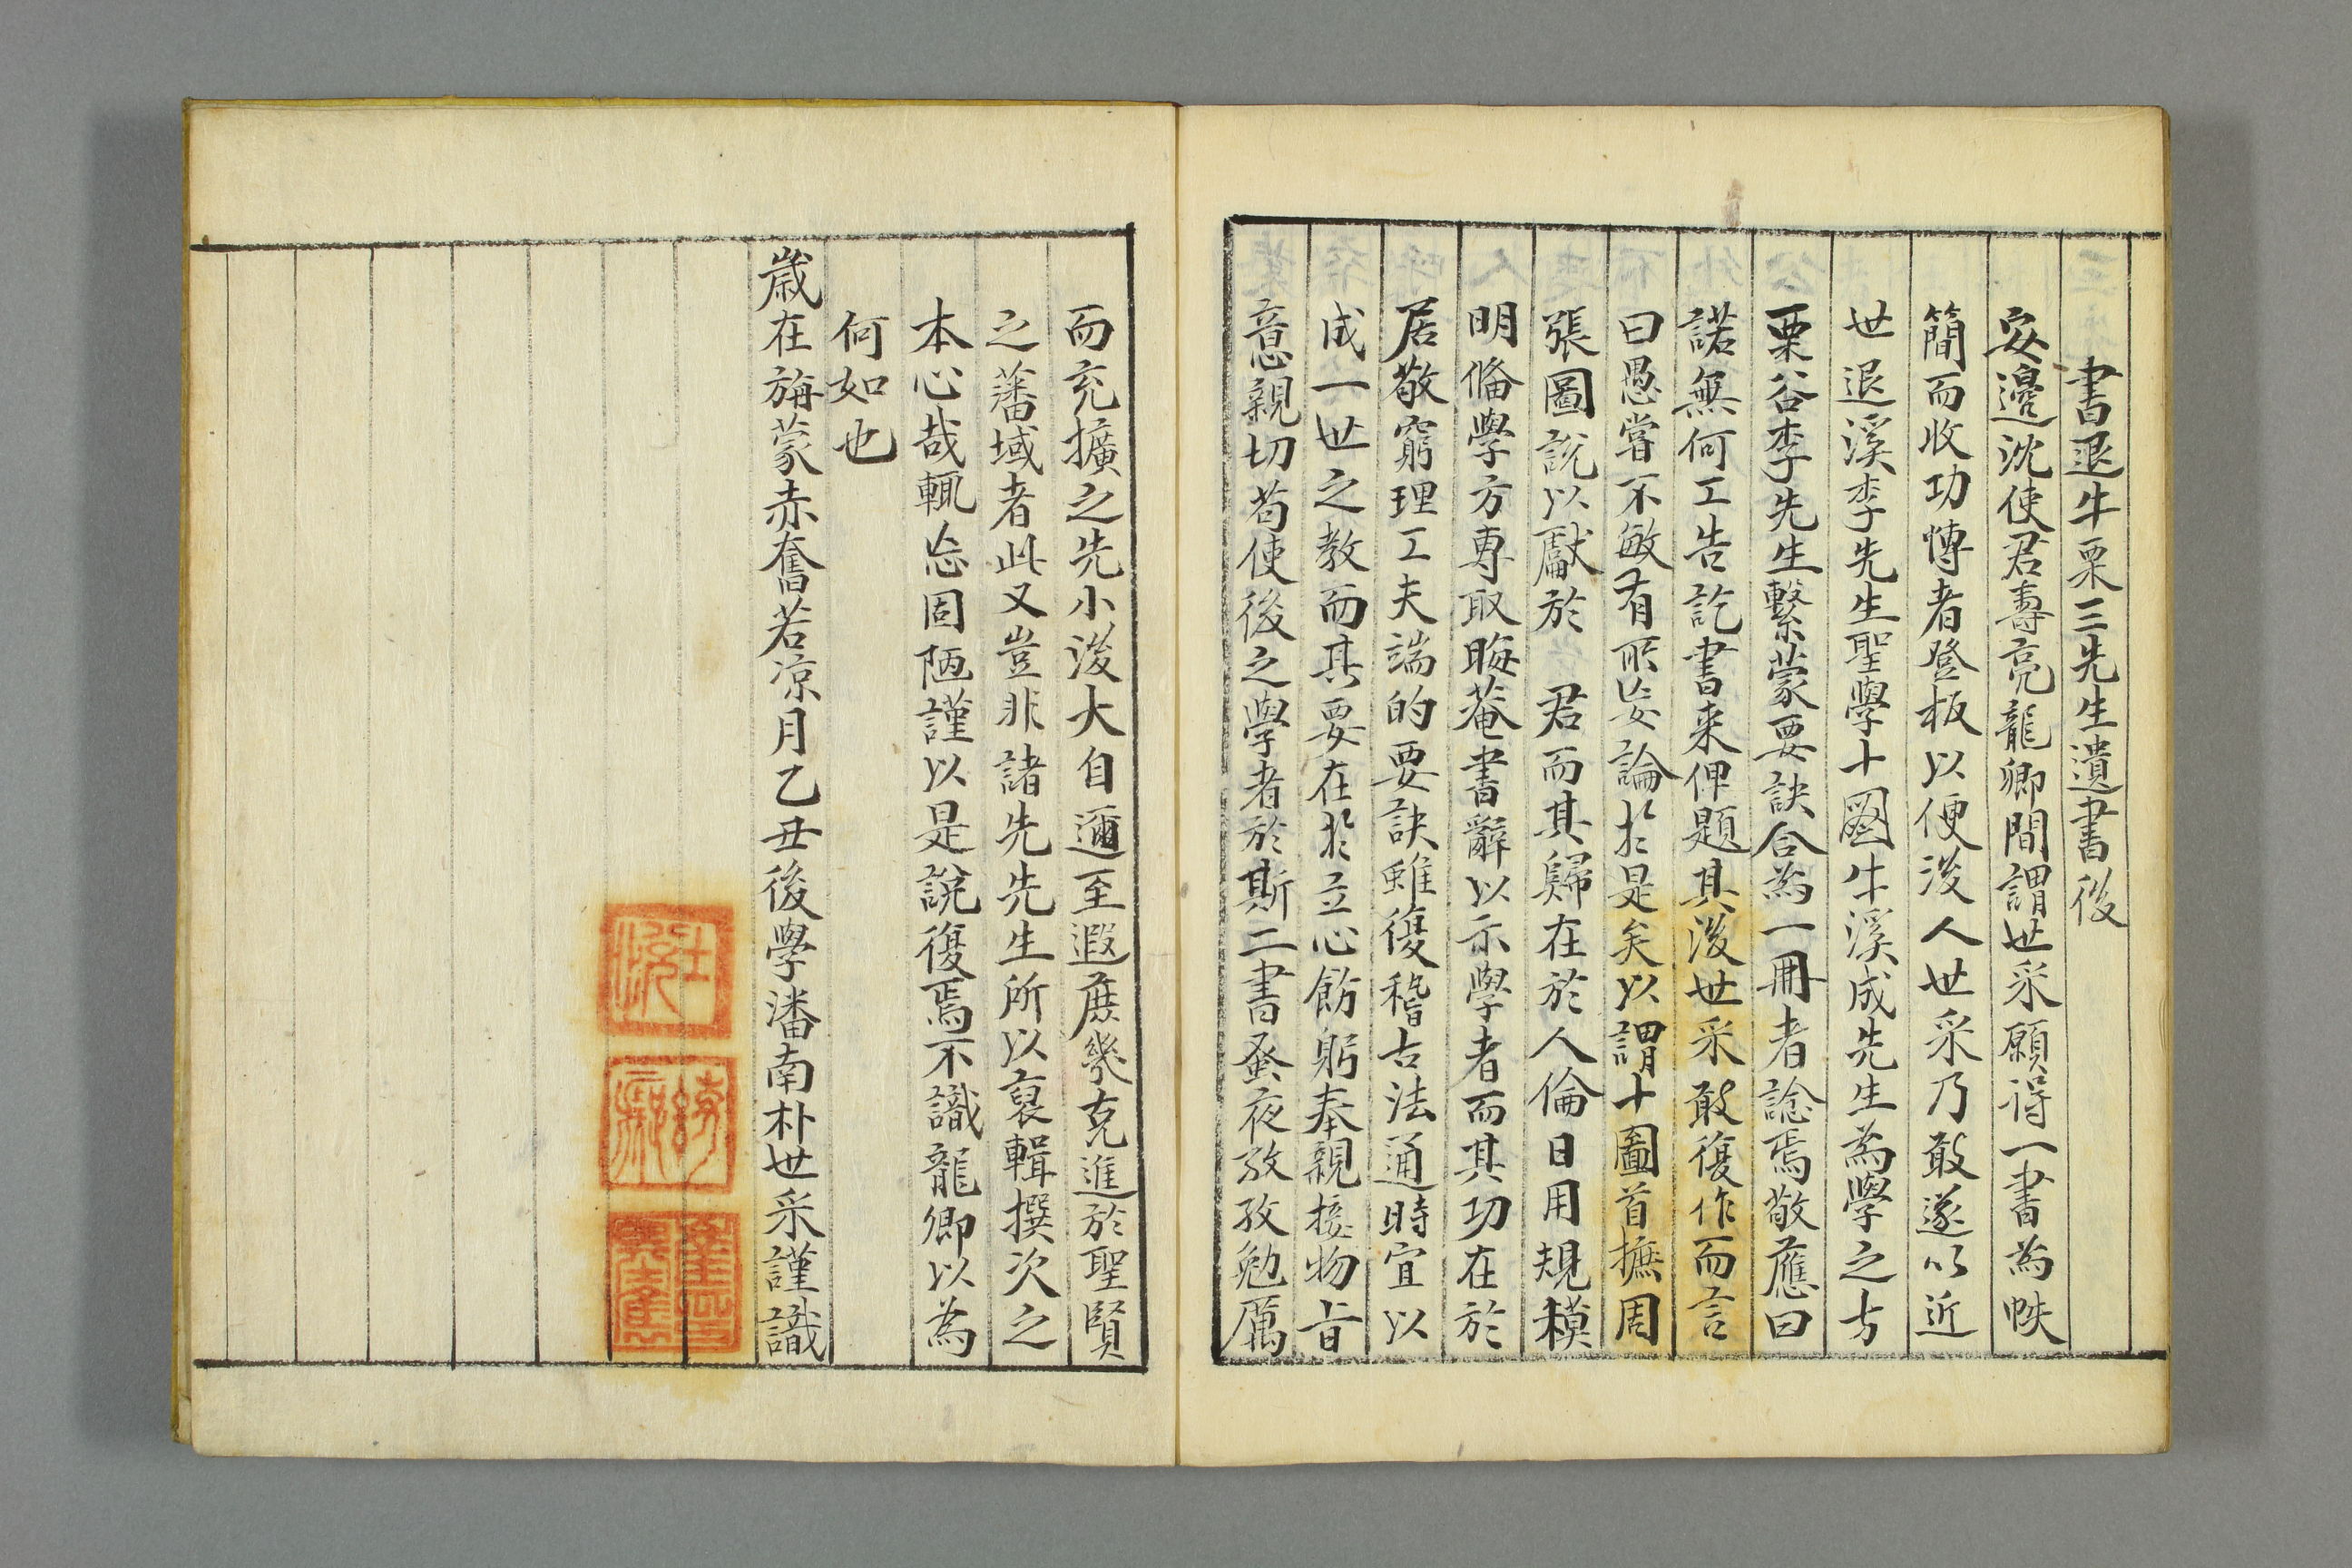 書退牛栗三先生遺書後
安邊沈使君壽亮龍卿間謂世采願得一書為帙
簡而收功博者登板以便後人世采乃敢遂以近
世退溪李先生聖學十圖牛溪成先生為學之方
栗谷李先生擊蒙要訣合為一冊者諗焉敬應曰
諾無何工告訖書来俾題其後世采敢復作而言
曰愚嘗不敏有所妄論於是矣以謂十圖首摭周
張圖說以獻於 君而其歸在於人倫日用規模
明備學方專取晦菴書辭以示學者而其功在於
居敬窮理工夫端的要訣雖復稽古法通時宜以
成一世之教而其要在於立心飭躬奉親接物旨
意親切苟使後之學者於斯二書蚤夜孜孜勉厲
而充擴之先小後大自邇至遐庶幾克進於聖賢
之藩域者此又豈非諸先先生所以裒輯撰次之
本心哉輒忘固陋謹以是說復焉不識龍卿以為
何如也
歲在旃蒙赤奮若凉月乙丑後學潘南朴世采謹識